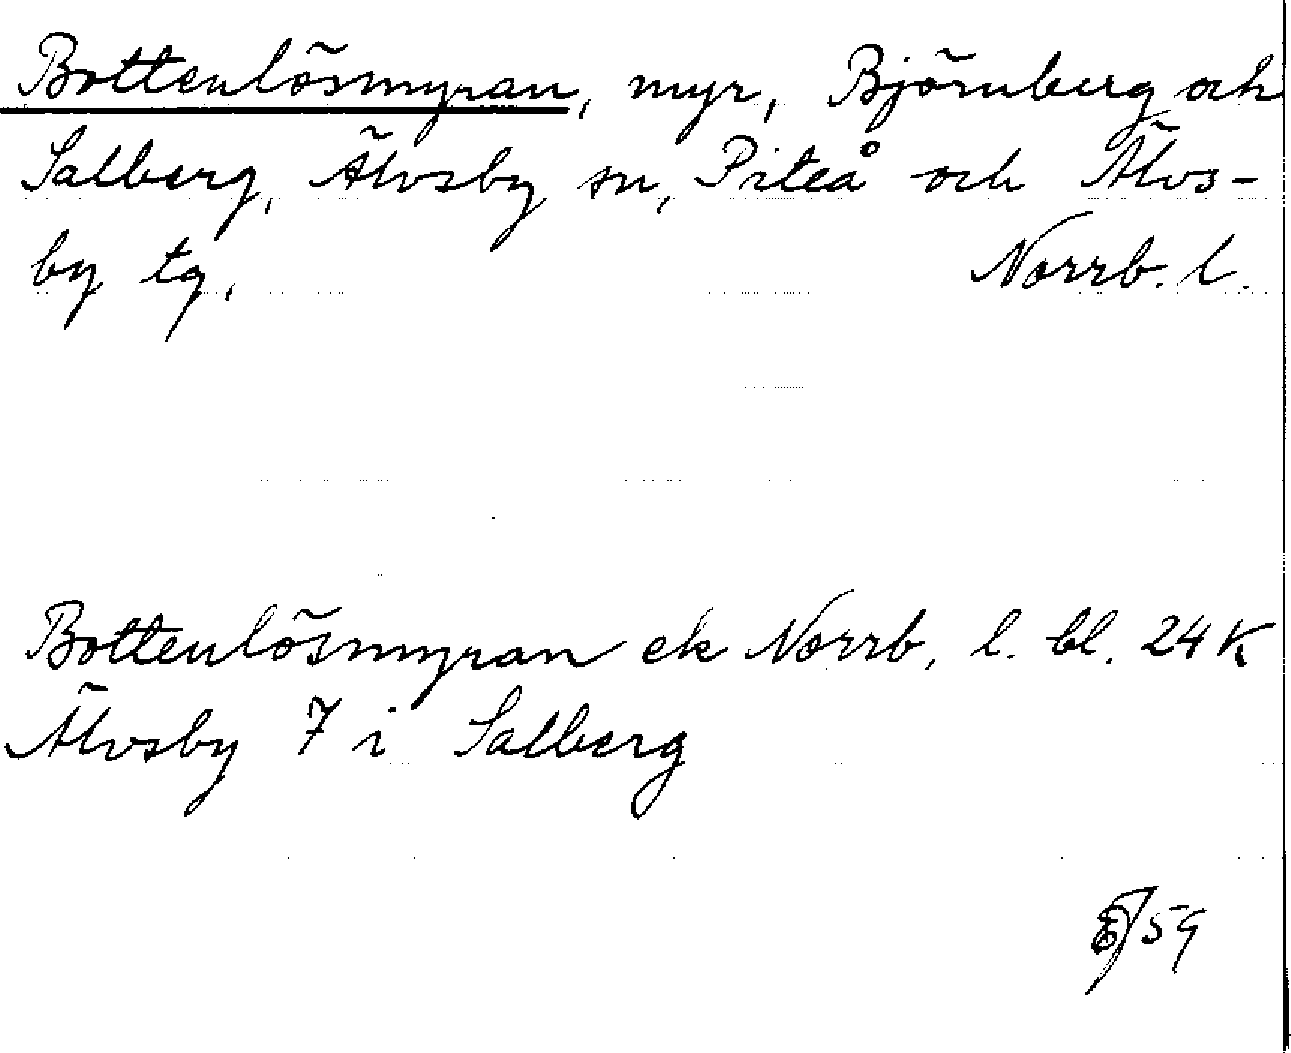 Bottenlösmyran, myr, Björnberg och
Salberg, Älvsby sn, Piteå och Älvs-
by tg, Norrb. l.
Bottenlösmyran ek Norrb. l. bl. 24 K
Älvsby 7 i Salberg
59